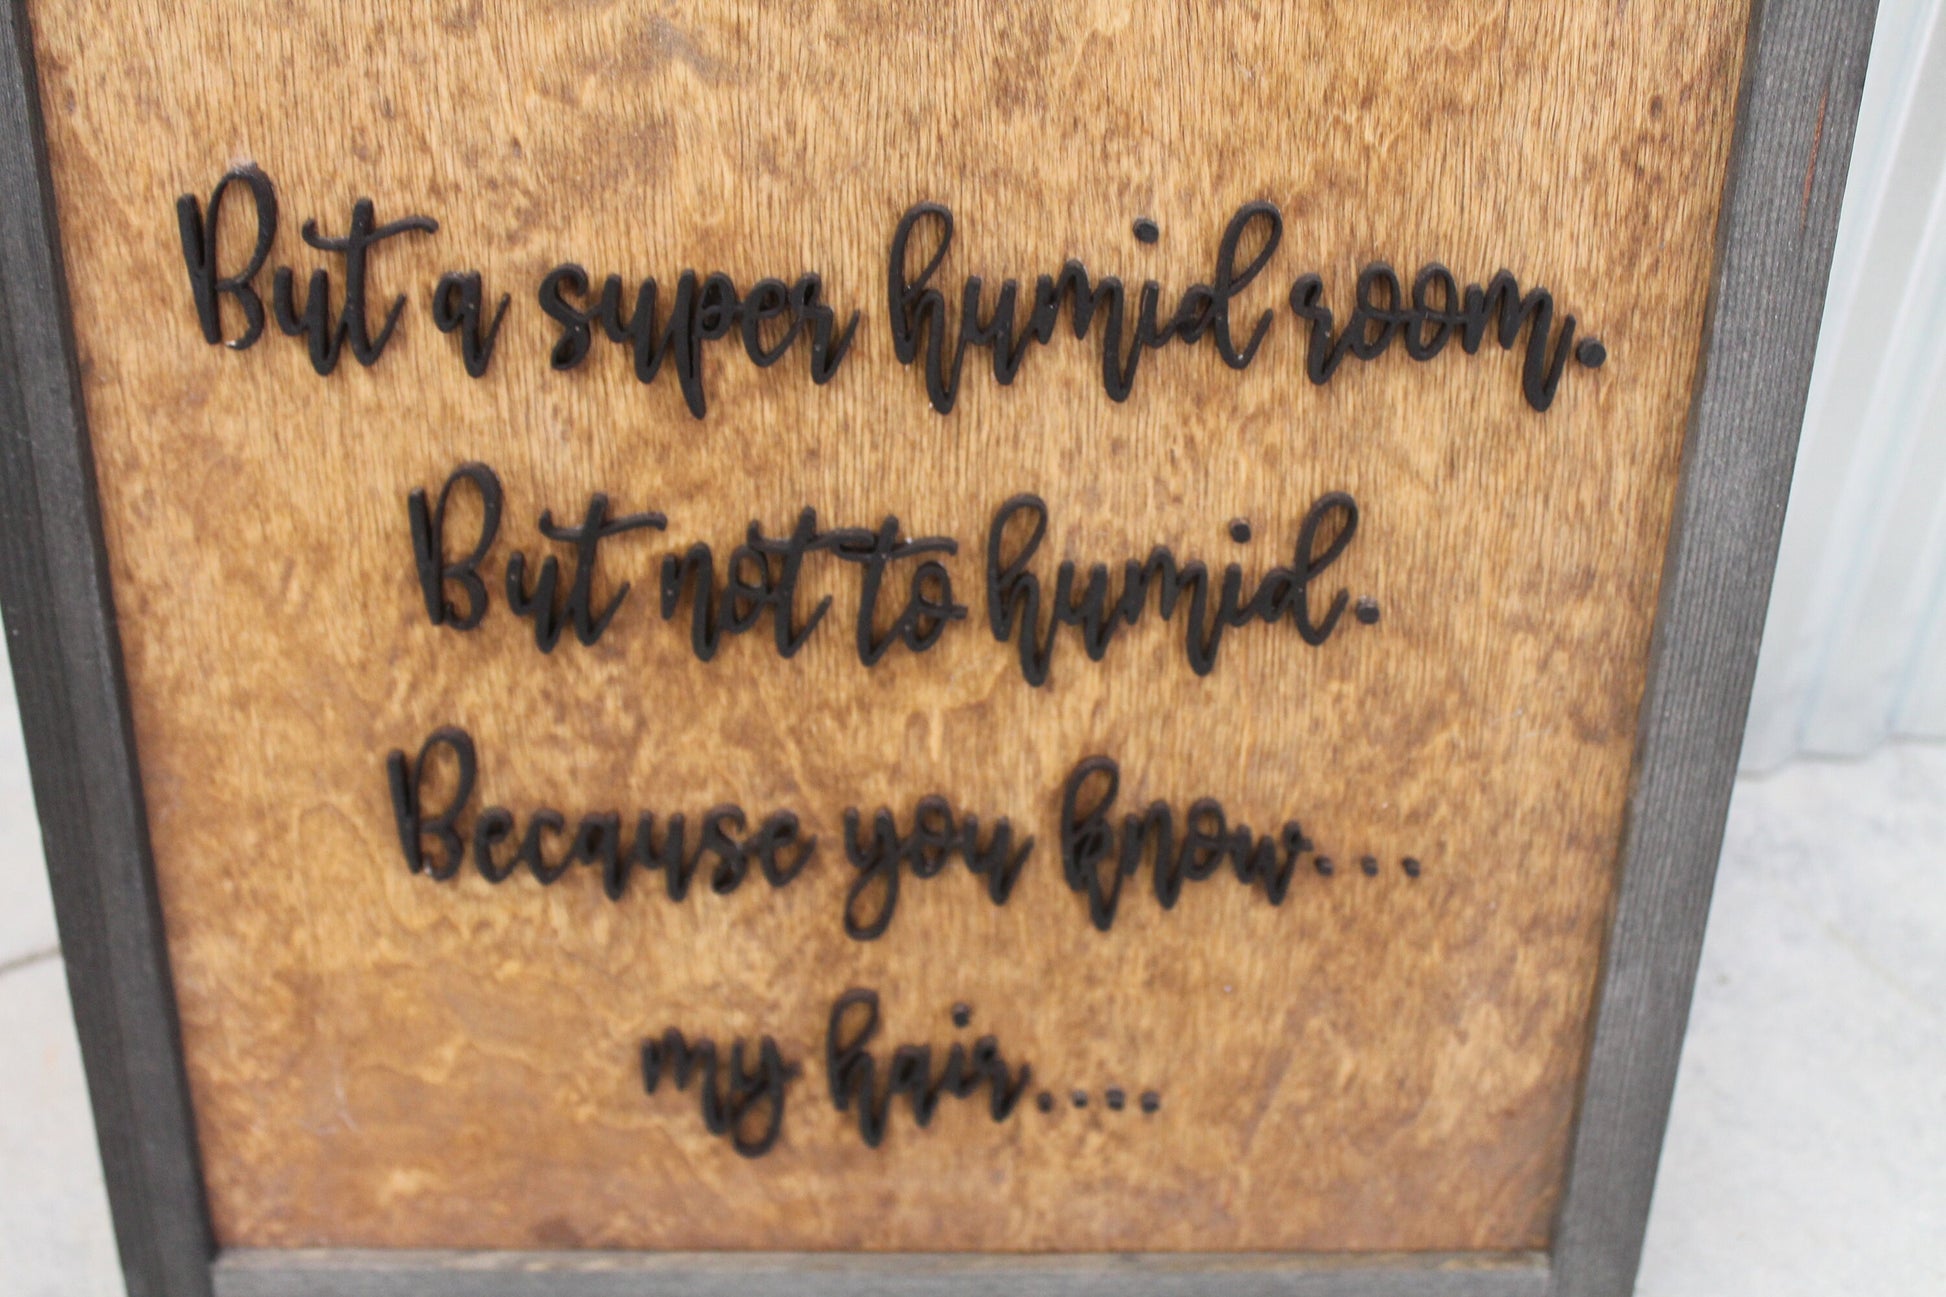 But a super humid room.
But not to humid.
Because you know...
my hair....